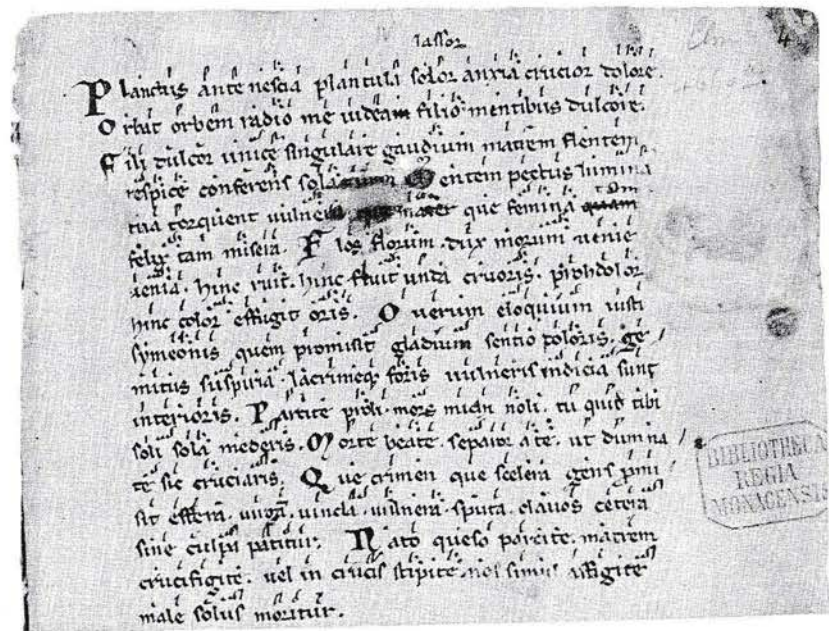 lassor
4
Planctus ante nescia planctula solor anxia crucior dolore.
Orbat orbem radio me iudeam filio mentibus dulcore.
Fili dulcor unice singulare gaudium matrem flentem
respice conferens entem pectus lumina
tua torquent uulnera mater que femina quam tam
felix tam misera. Flos florum. dux morum uenie
uenia. hinc ruit. hinc fluit unda cruoris. prohdolor
hinc color effugit oris. O uerum eloquium iusti
symeonis quem promisit gladium sentio doloris. ge
mitus suspiria. lacrimeq; foris uulneris indicia sunt
interioris. Parcite proli. mors michi noli. tu quid tibi
soli sola mederis. Morte beate separor a te. ut dum na
te sic cruciaris. Que crimen que scelera gens
sit effera. uincla. uulnera. sputa. clauos cetera
sine culpa patitur. Nato queso parcite. matrem
crucifigite. uel in crucis stipite. nos simus affigite
male solus moritur.
BIBLIOTHECA
REGIA
MONACENSIS